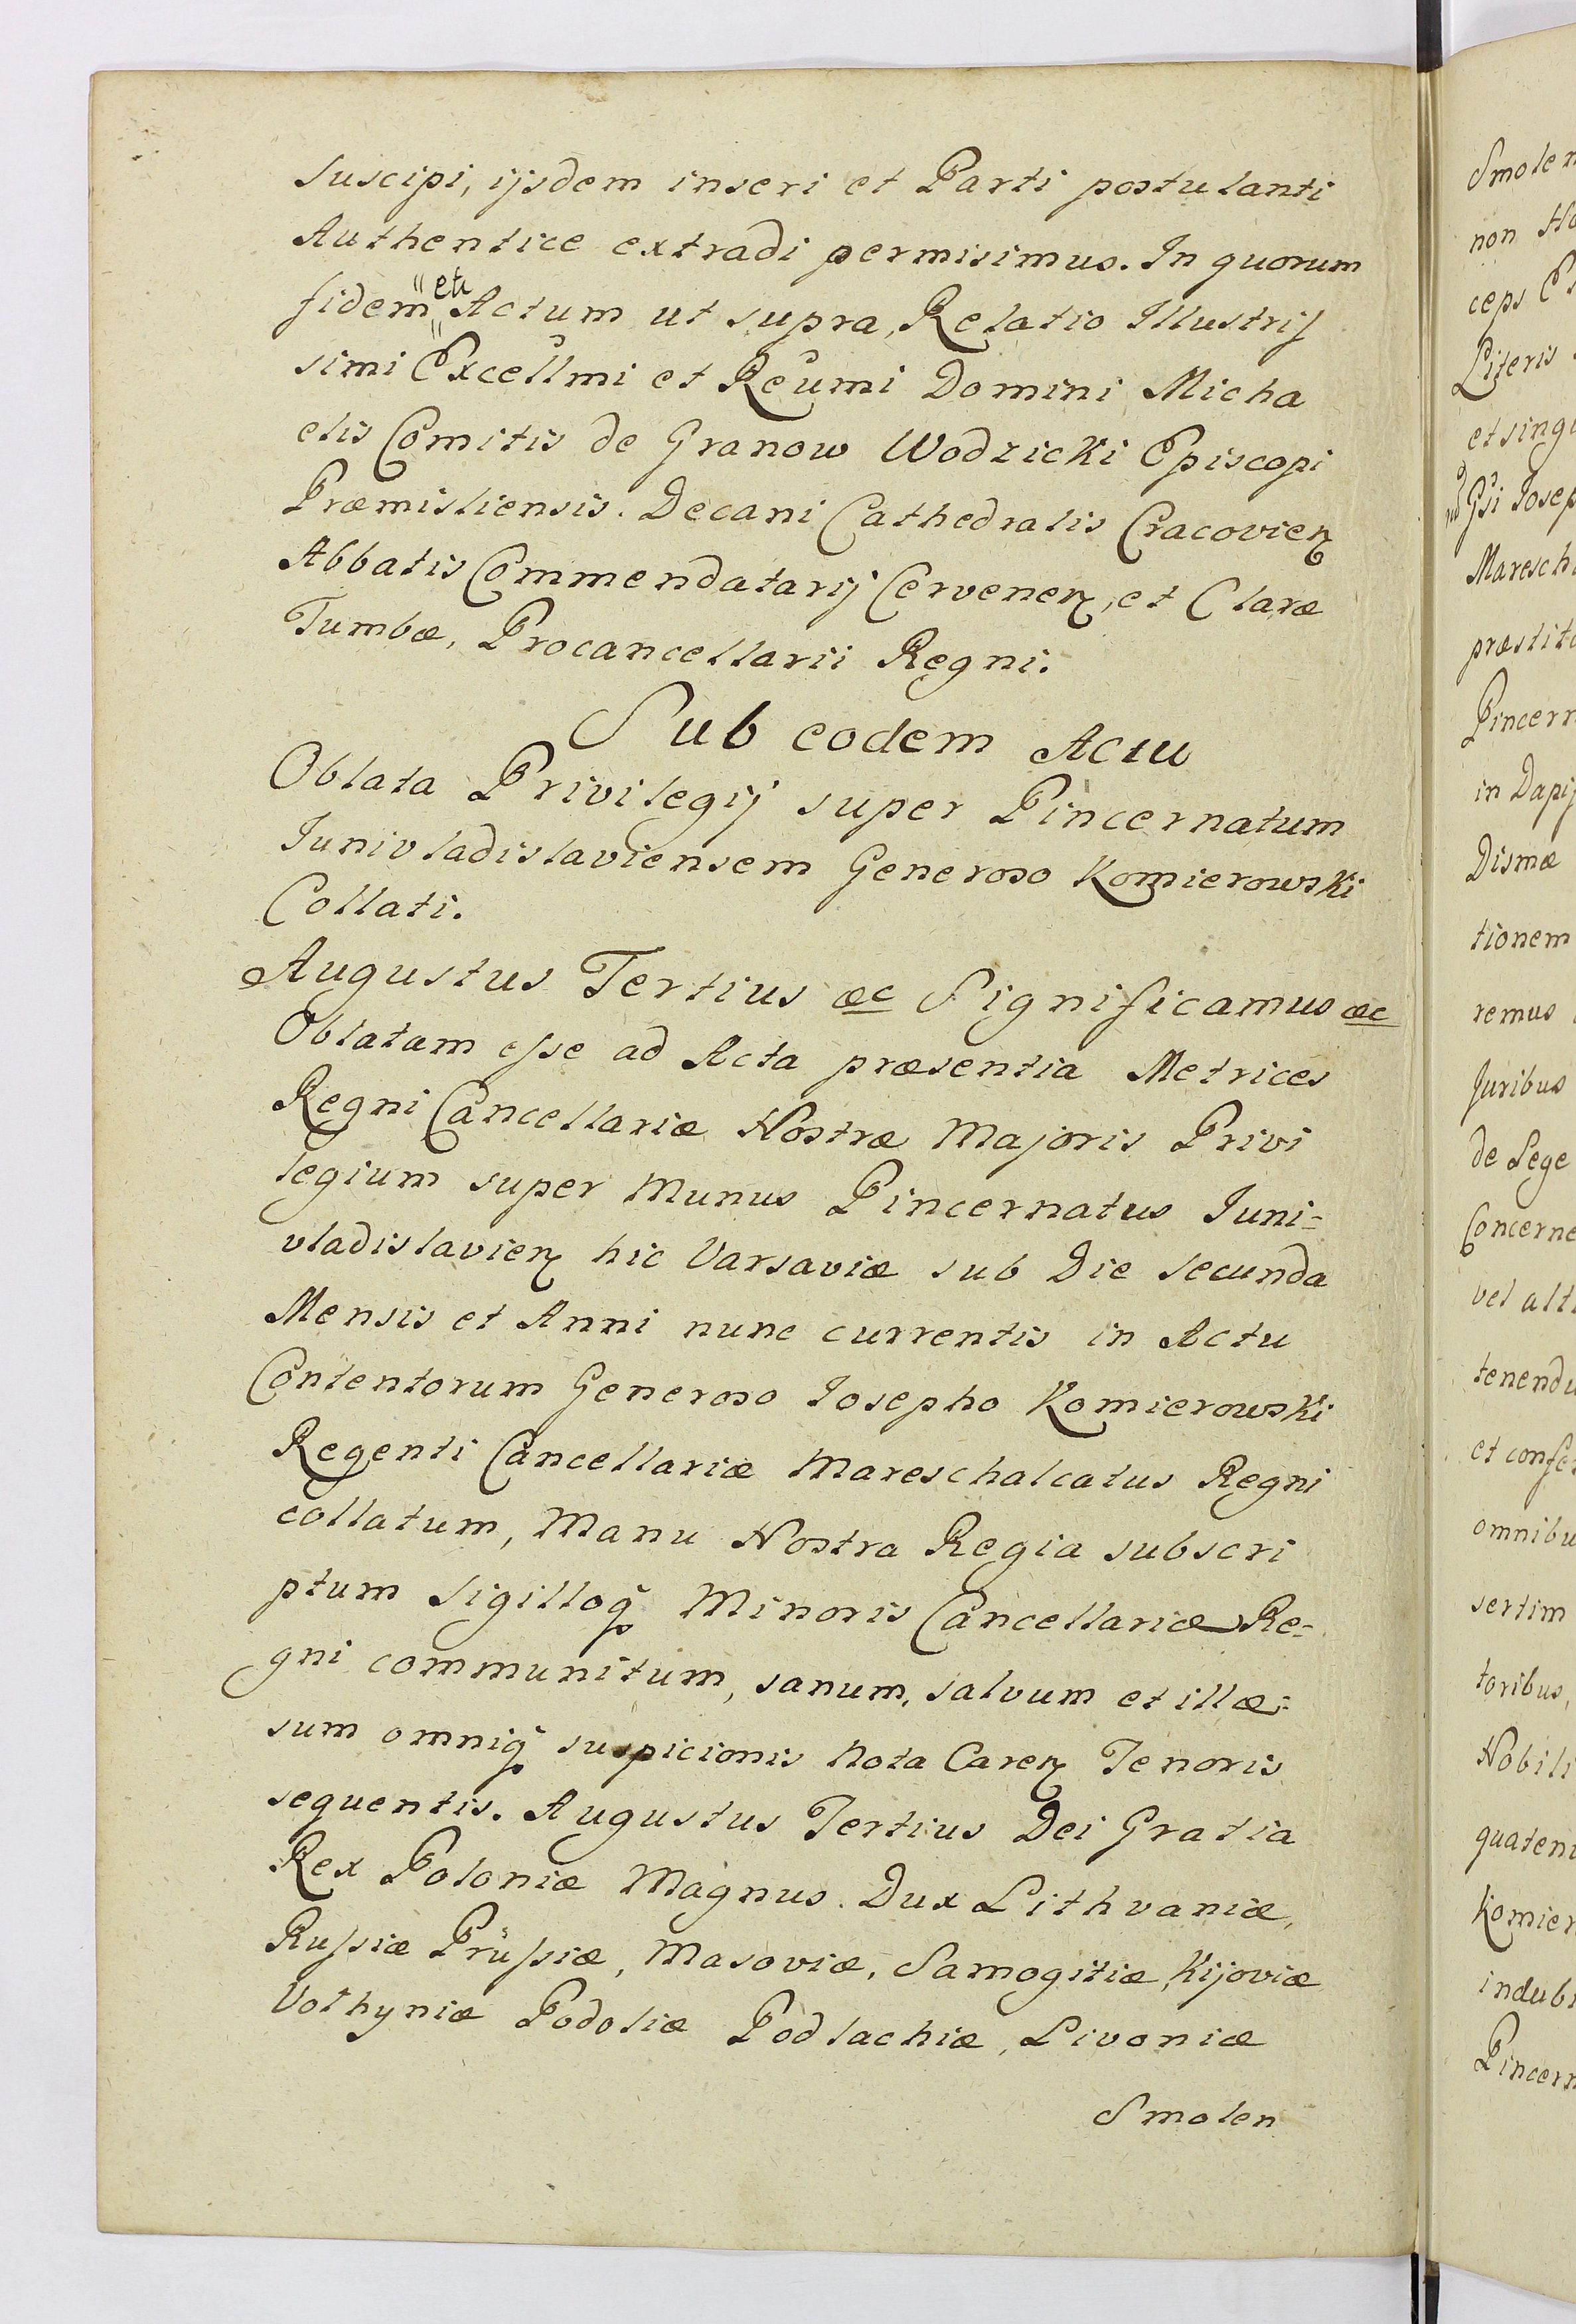 suscipi, ijsdem inseri et Parti postulanti
Authentice extradi permisimus. In quorum
fidem "etc" Actum ut supra, Relatio Illustris
simi Excellmi et Reumi Domini Micha
elis Comitis de Granow Wodzicki Episcopi
Præmisliensis. Decani Cathedralis Cracovien
Abbatis Commendatarij Cervenen, et Claræ
Tumbæ, Procancellarii Regni.
Sub eodem Actu
Oblata Privilegij super Pincernatum
Junivladislaviensem Generoso Komierowski
Collati.
Augustus Tertius &c Significamus &c
Oblatam esse ad Acta præsentia Metrices
Regni Cancellariæ Nostræ Majoris Privi
legium super Munus Pincernatus Juni=
vladislavien hic Varsaviæ sub Die secunda
Mensis et Anni nunc currentis in Actu
Contentorum Generoso Josepho Komierowski
Regenti Cancellariæ Mareschalcatus Regni
collatum, Manu Nostra Regia subscri
ptum Sigilloq Minoris Cancellariæ Re=
gni communitum, sanum, salvum et illæ=
sum omniq suspicionis Nota Caren Tenoris
sequentis. Augustus Tertius Dei Gratia
Rex Poloniæ Magnus. Dux Lithvaniæ,
Russiæ Prüssiæ, Masoviæ, Samogitiæ, Kijoviæ
Volhyniæ Podoliæ Podlachiæ, Livoniæ
Smolen
Smolen
non
ceps
Literis
et sing
Gsi Josep
Maresch
præstit
Pincern
in Dapi
Dismæ
tionem
remus
Juribus
de Lege
Concerne
vel alt
tenendu
et confe
omnibu
sertim
toribus,
Nobili
quaten
Komier
indub
Pincern